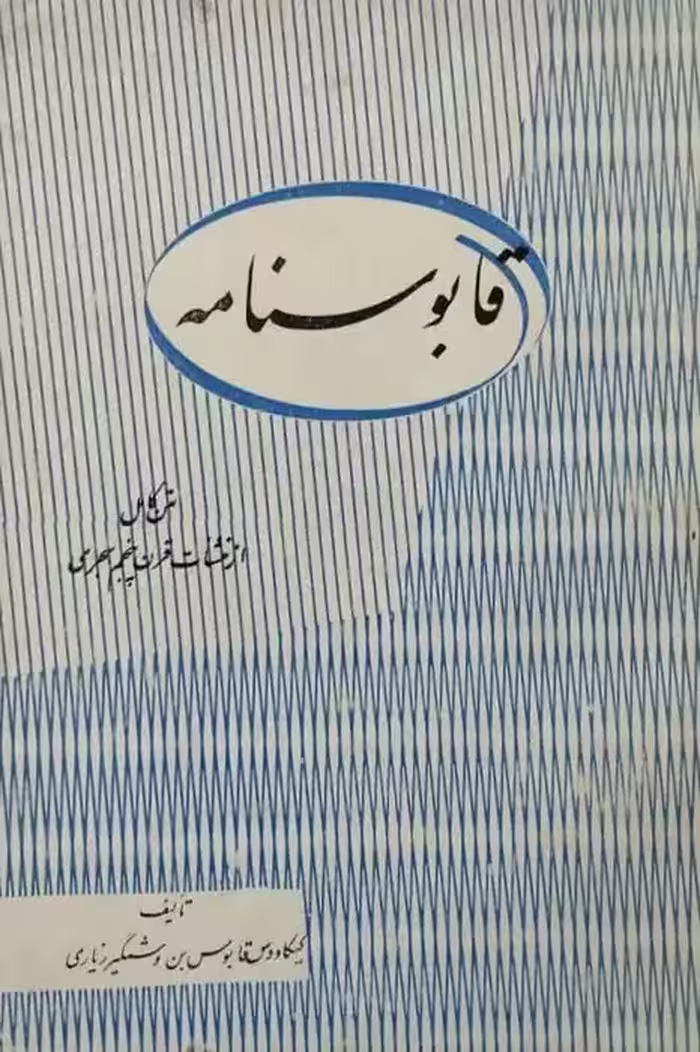 قابوسنامه
متن کامل
از منشآت قرن پنجم هجری
تألیف
کیکاووس قابوس بن وشمگیر زیاری